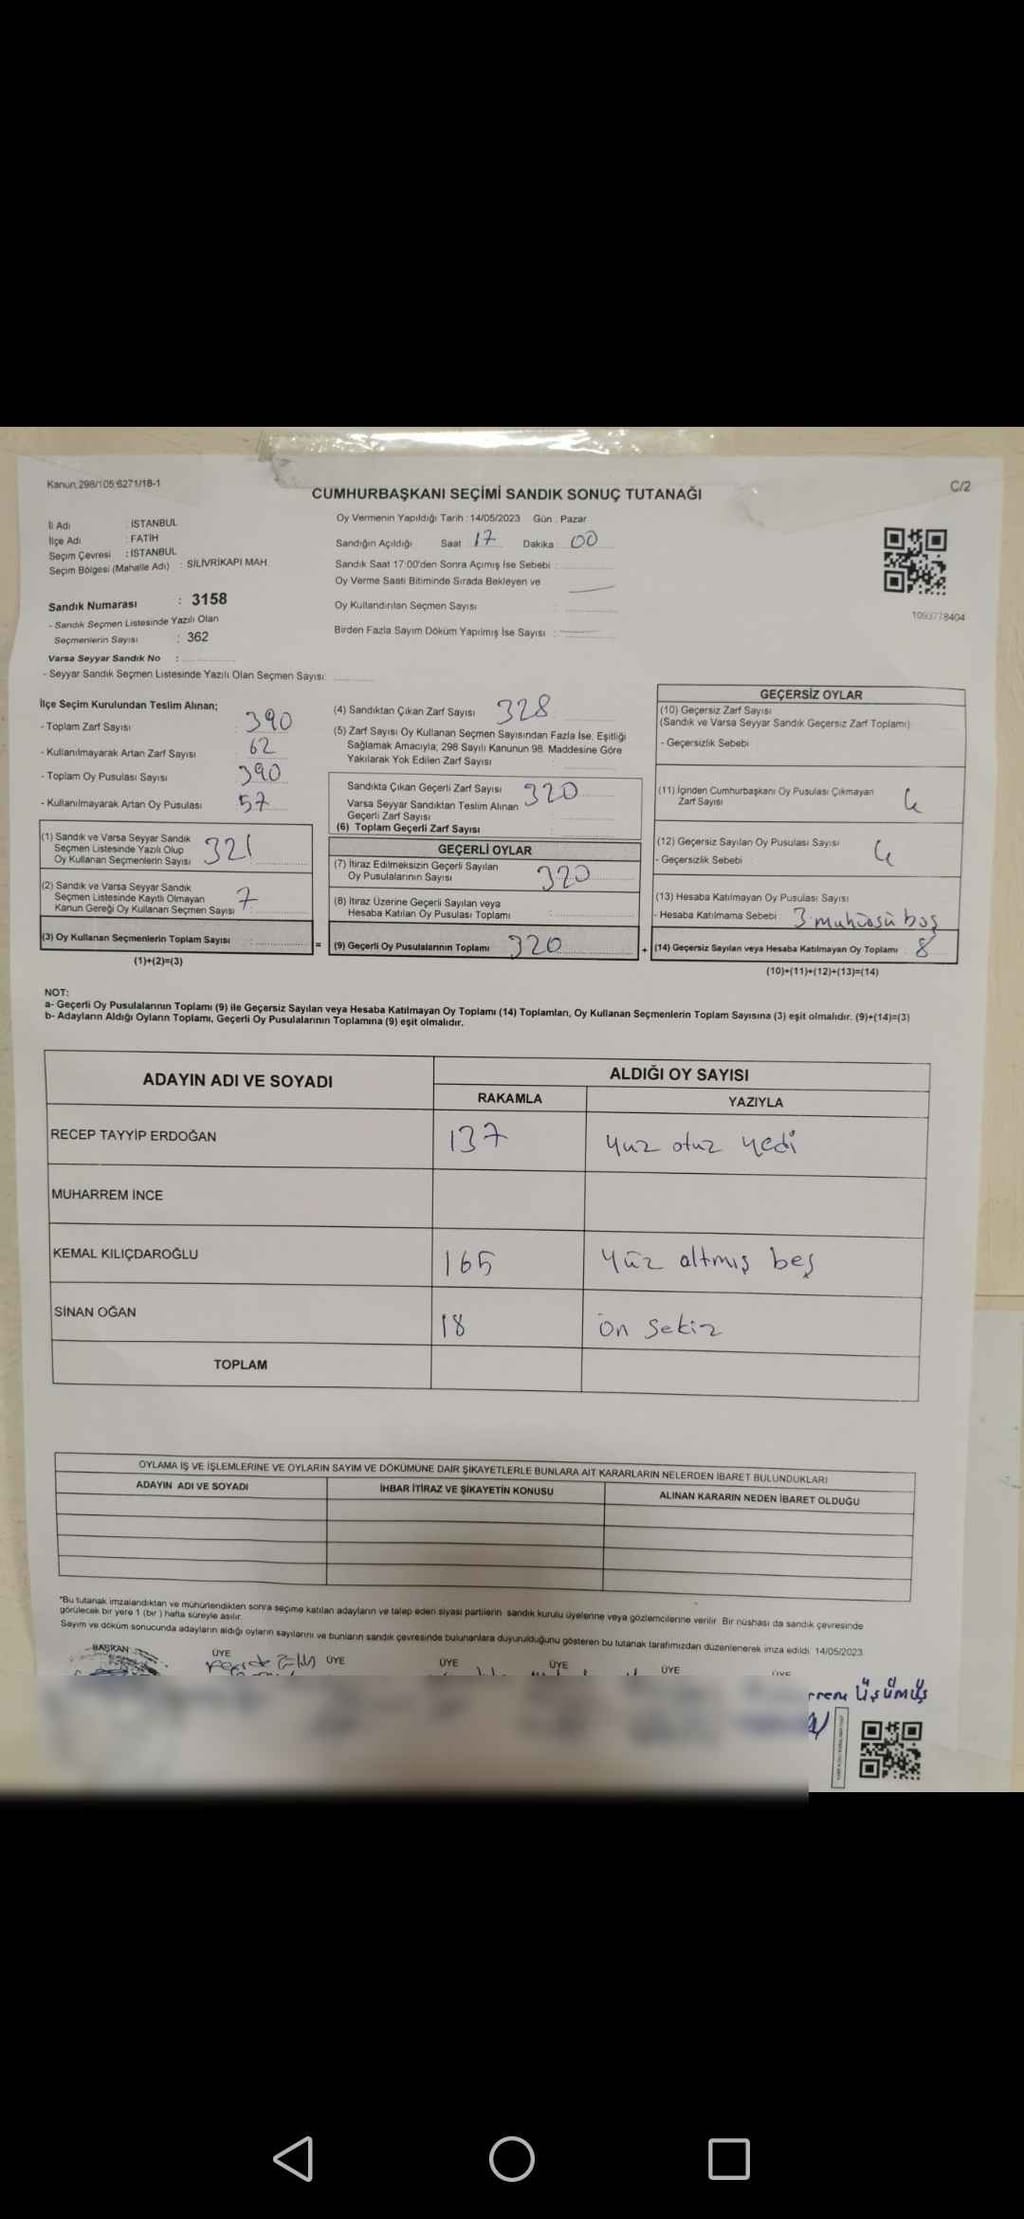 Kanun 298/105 6271/18-1
C/2
CUMHURBAŞKANI SEÇİMİ SANDIK SONUÇ TUTANAĞI
İl Adı : İSTANBUL
İlçe Adı : FATİH
Seçim Çevresi : İSTANBUL
Seçim Bölgesi (Mahalle Adı) : SİLİVRİKAPI MAH.
Sandık Numarası : 3158
- Sandık Seçmen Listesinde Yazılı Olan
Seçmenlerin Sayısı : 362
Varsa Seyyar Sandık No :
- Seyyar Sandık Seçmen Listesinde Yazılı Olan Seçmen Sayısı:
Oy Vermenin Yapıldığı Tarih : 14/05/2023 Gün : Pazar
Sandığın Açıldığı Saat 17 Dakika 00
Sandık Saat 17:00'den Sonra Açımış İse Sebebi :
Oy Verme Saati Bitiminde Sırada Bekleyen ve
Oy Kullandırılan Seçmen Sayısı :
Birden Fazla Sayım Döküm Yapılmış İse Sayısı :
1093778404
İlçe Seçim Kurulundan Teslim Alınan;
- Toplam Zarf Sayısı 390
- Kullanılmayarak Artan Zarf Sayısı 62
- Toplam Oy Pusulası Sayısı 390
- Kullanılmayarak Artan Oy Pusulası 57
(1) Sandık ve Varsa Seyyar Sandık
Seçmen Listesinde Yazılı Olup
Oy Kullanan Seçmenlerin Sayısı 321
(2) Sandık ve Varsa Seyyar Sandık
Seçmen Listesinde Kayıtlı Olmayan
Kanun Gereği Oy Kullanan Seçmen Sayısı 7
(3) Oy Kullanan Seçmenlerin Toplam Sayısı :
(1)+(2)=(3)
=
(4) Sandıktan Çıkan Zarf Sayısı 328
(5) Zarf Sayısı Oy Kullanan Seçmen Sayısından Fazla İse, Eşitliği
Sağlamak Amacıyla, 298 Sayılı Kanunun 98. Maddesine Göre
Yakılarak Yok Edilen Zarf Sayısı
Sandıkta Çıkan Geçerli Zarf Sayısı 320
Varsa Seyyar Sandıktan Teslim Alınan
Geçerli Zarf Sayısı
(6) Toplam Geçerli Zarf Sayısı
GEÇERLİ OYLAR
(7) İtiraz Edilmeksizin Geçerli Sayılan
Oy Pusulalarının Sayısı 320
(8) İtiraz Üzerine Geçerli Sayılan veya
Hesaba Katılan Oy Pusulası Toplamı :
(9) Geçerli Oy Pusulalarının Toplamı 320
+
GEÇERSİZ OYLAR
(10) Geçersiz Zarf Sayısı
(Sandık ve Varsa Seyyar Sandık Geçersiz Zarf Toplamı)
- Geçersizlik Sebebi
(11) İçinden Cumhurbaşkanı Oy Pusulası Çıkmayan
Zarf Sayısı 4
(12) Geçersiz Sayılan Oy Pusulası Sayısı 4
- Geçersizlik Sebebi
(13) Hesaba Katılmayan Oy Pusulası Sayısı
- Hesaba Katılmama Sebebi : 3 boş
(14) Geçersiz Sayılan veya Hesaba Katılmayan Oy Toplamı 8
(10)+(11)+(12)+(13)=(14)
NOT:
a- Geçerli Oy Pusulalarının Toplamı (9) ile Geçersiz Sayılan veya Hesaba Katılmayan Oy Toplamı (14) Toplamları, Oy Kullanan Seçmenlerin Toplam Sayısına (3) eşit olmalıdır. (9)+(14)=(3)
b- Adayların Aldığı Oyların Toplamı, Geçerli Oy Pusulalarının Toplamına (9) eşit olmalıdır.
ADAYIN ADI VE SOYADI ALDIĞI OY SAYISI
RAKAMLA YAZIYLA
RECEP TAYYİP ERDOĞAN 137 yuz otuz yedi
MUHARREM İNCE
KEMAL KILIÇDAROĞLU 165 Yüz altmış beş
SİNAN OĞAN 18 ön sekiz
TOPLAM
OYLAMA İŞ VE İŞLEMLERİNE VE OYLARIN SAYIM VE DÖKÜMÜNE DAİR ŞİKAYETLERLE BUNLARA AİT KARARLARIN NELERDEN İBARET BULUNDUKLARI
ADAYIN ADI VE SOYADI İHBAR İTİRAZ VE ŞİKAYETİN KONUSU ALINAN KARARIN NEDEN İBARET OLDUĞU
"Bu tutanak imzalandıktan ve mühürlendikten sonra seçime katılan adayların ve talep eden siyasi partilerin sandık kurulu üyelerine veya gözlemcilerine verilir. Bir nüshası da sandık çevresinde
görülecek bir yere 1 (bir ) hafta süreyle asılır.
Sayım ve döküm sonucunda adayların aldığı oyların sayılarını ve bunların sandık çevresinde bulunanlara duyurulduğunu gösteren bu tutanak tarafımızdan düzenlenerek imza edildi. 14/05/2023
BAŞKAN ÜYE ÜYE ÜYE ÜYE ÜYE ÜYE
üşümüş